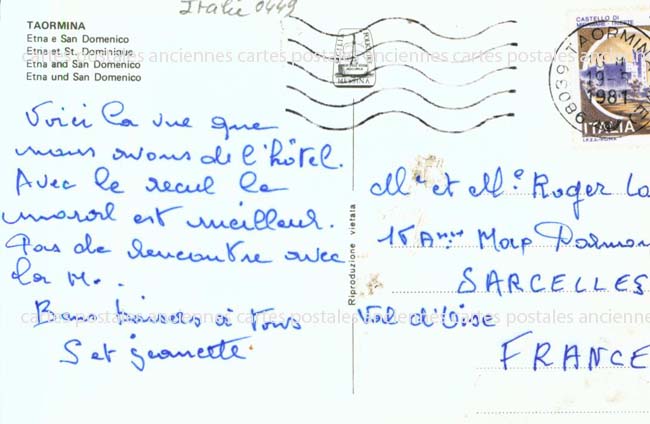 Italie 0449
TAORMINA
Etna e San Domenico
Etna et St. Dominique
Etna and San Domenico
Etna und San Domenico
cartes postales anciennes cartes postales anciennes cartes postales anciennes
MESSINA
CASTELLO DI
98039 TAORMINA
19-5
1981
ITALIA
Voici la vue que
nous avons de l'hôtel.
Avec le recul le
moral est meilleur.
Pas de rencontre avec
la M.
Bons baisers à Tous
S et Jeannette
Riproduzione vietata
Mr et Me Roger La
15 A
SARCELLES
cartes postales anciennes cartes postales anciennes cartes postales anciennes
Val d'Oise
FRANCE